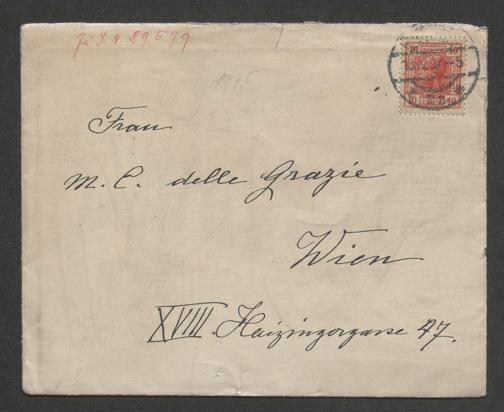 Zu I. N. 89.579
1905
Frau
M. E. delle Grazie
Wien
XVIII Haizingergasse 47.